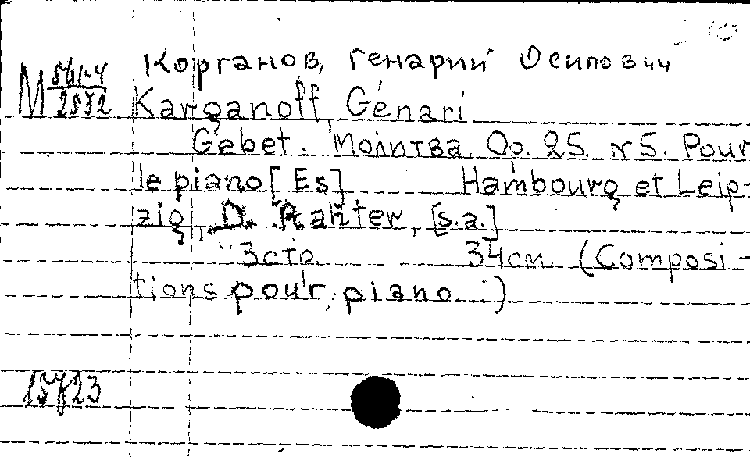 Корганов, Генарий Осипович
Karganoff, Génari
Gebet. Молитва. Op. 25 N 5. Pour
le piano [Es]. Hambourg et Leip-
zig, D. Rahter, [s.a.]
3 стр. 34 см. (Composi-
tions pour piano.)
15723